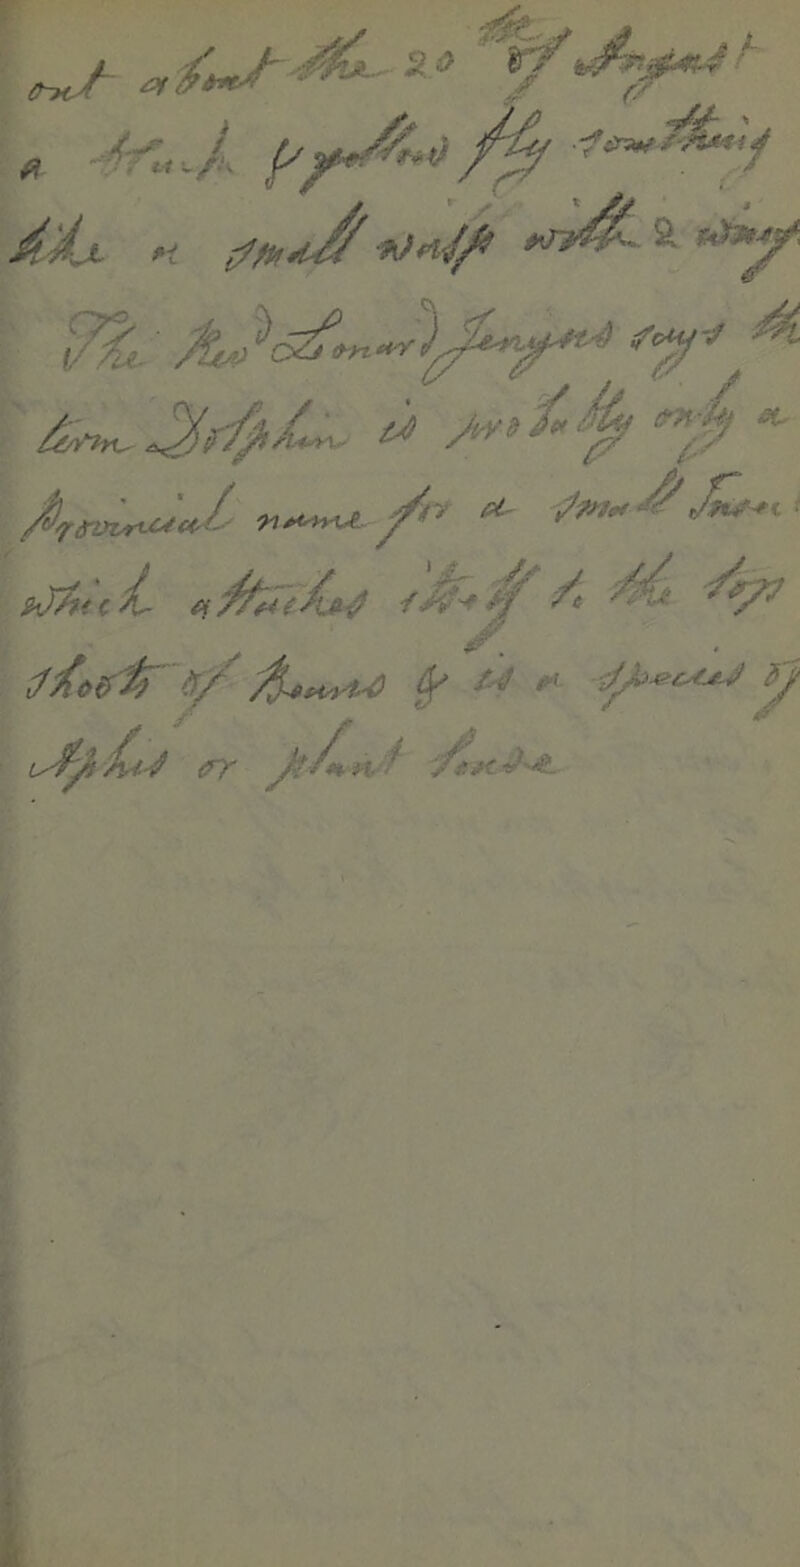 out about the 20th of August
a black & yellow fly something
like a small wasp with 2 wings
The Revd Leonard Jenyns says the
term Dolphin is probably only a
provincial name for a small Insect
which attaches itself to the top
shoots of beans & is a species of
Aphis or plant louse